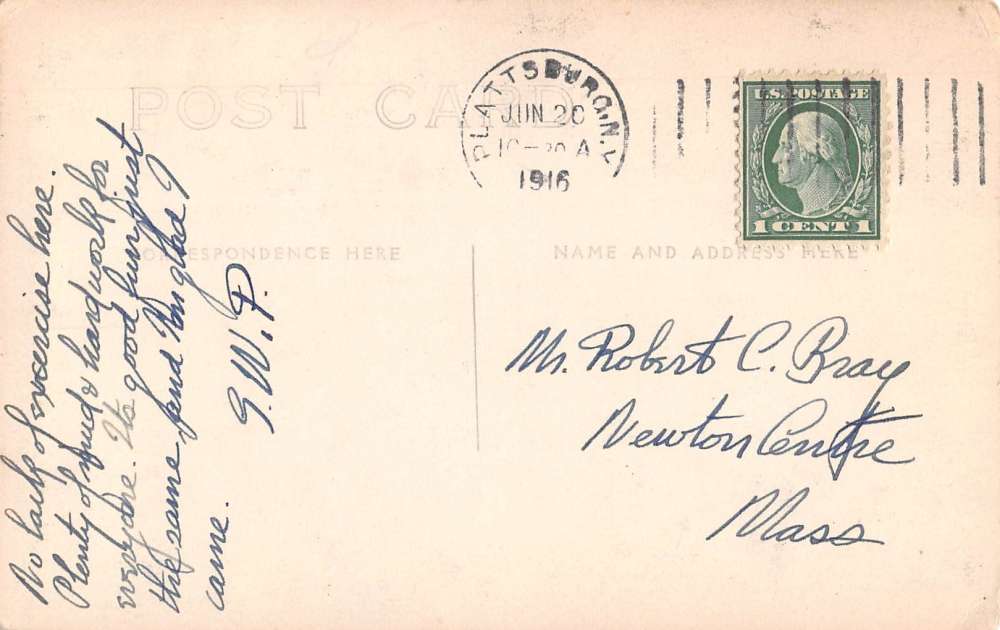 POST CARD
PLATTSBURG, N.Y.
JUN 20
10-30 A
1916
U.S. POSTAGE
1 CENT 1
CORRESPONDENCE HERE
NAME AND ADDRESS HERE
No lack of exercise here.
Plenty of mud & hard work for
everyone. Its good fun just
the same and I'm glad I
came.
G.W.P.
Mr. Robert C. Bray
Newton Centre
Mass